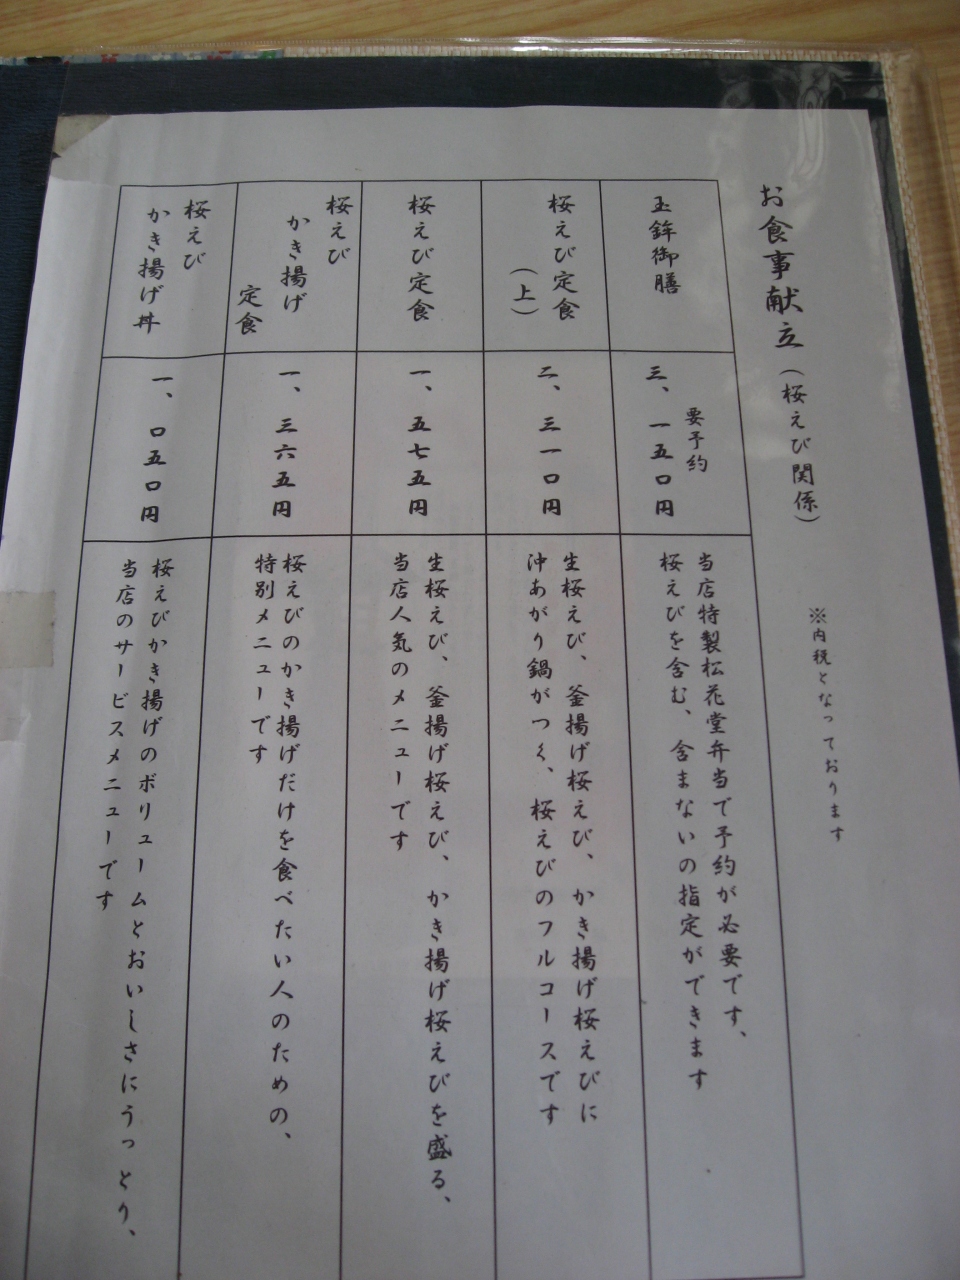 お食事献立（桜えび関係）
※内税となっております
玉鉾御膳
要予約
三、一五〇円
当店特製松花堂弁当で予約が必要です、
桜えびを含む、含まないの指定ができます
桜えび定食
（上）
二、三一〇円
生桜えび、釜揚げ桜えび、かき揚げ桜えびに
沖あがり鍋がつく、桜えびのフルコースです
桜えび定食
一、五七五円
生桜えび、釜揚げ桜えび、かき揚げ桜えびを盛る、
当店人気のメニューです
桜えび
かき揚げ
定食
一、三六五円
桜えびのかき揚げだけを食べたい人のための、
特別メニューです
桜えび
かき揚げ丼
一、〇五〇円
桜えびかき揚げのボリュームとおいしさにうっとり、
当店のサービスメニューです